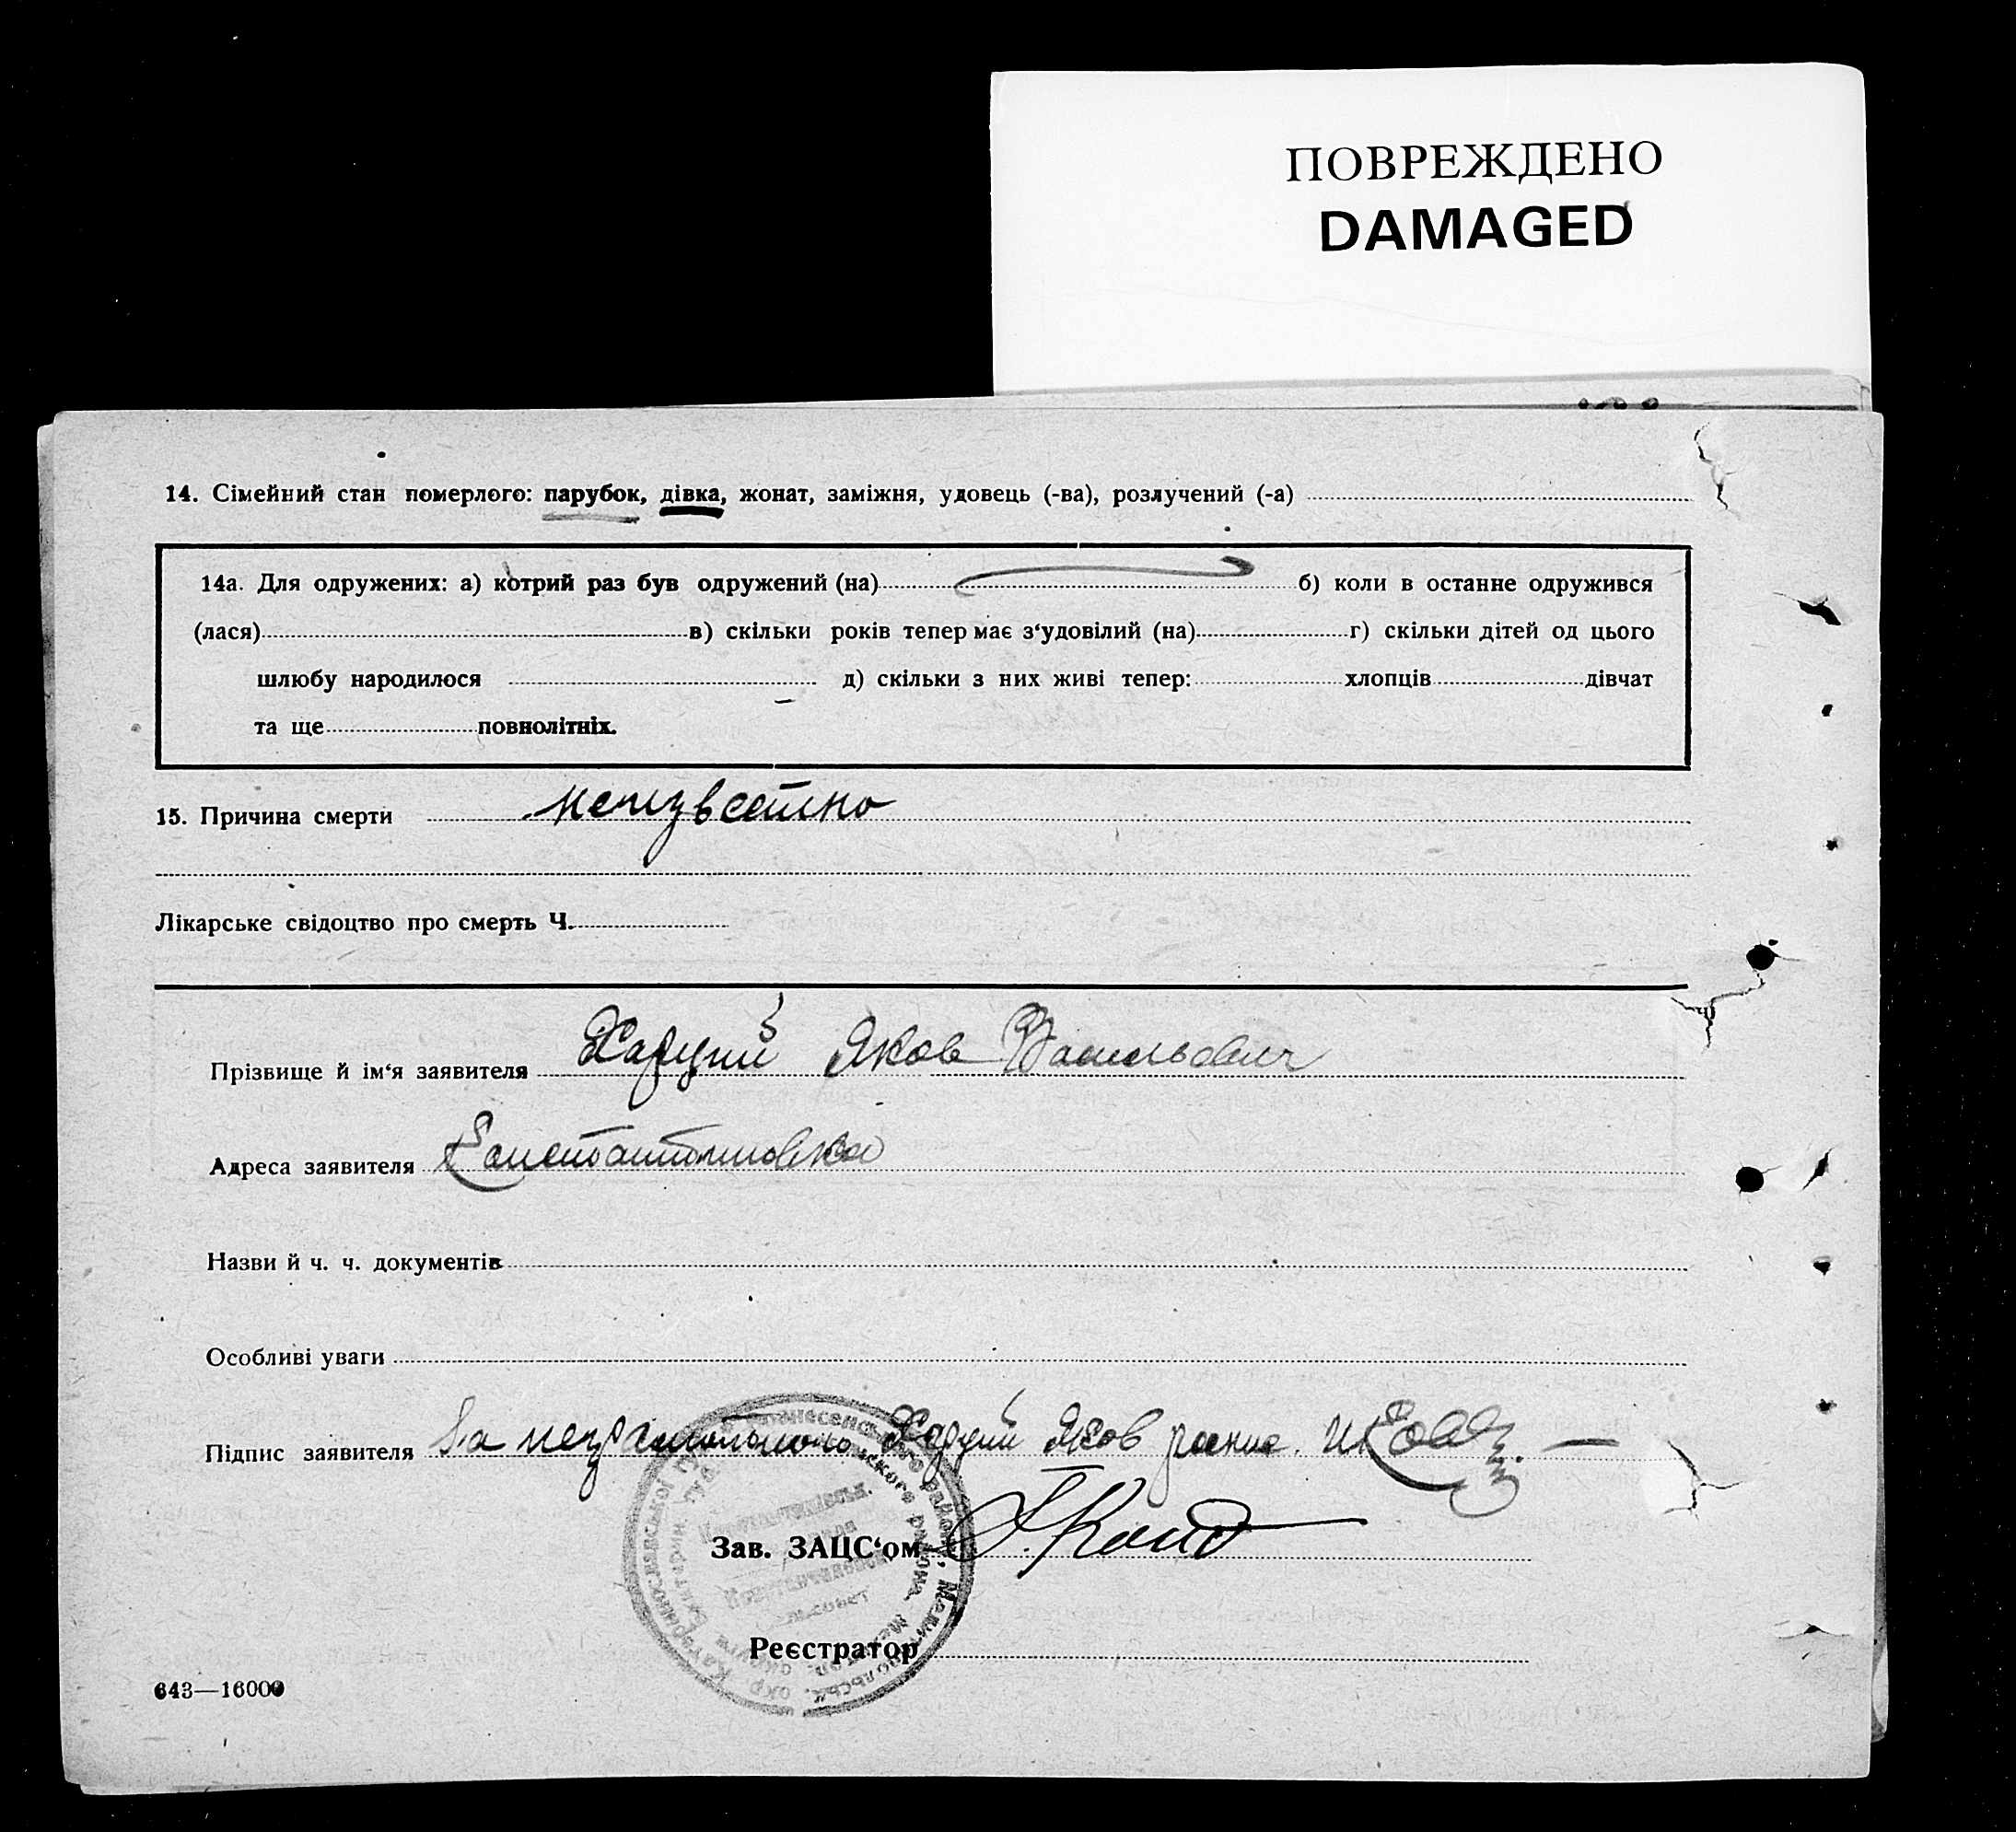 ПОВРЕЖДЕНО
DAMAGED
14. Сімейний стан померлого: парубок, дівка, жонат, заміжня, удовець (-ва), розлучений (-а)
14а. Для одружених: а) котрий раз був одружений (на) б) коли в останне одружився
(лася) в) скільки років тепер має з‘удовілий (на) г) скільки дітей од цього
шлюбу народилося д) скільки з них живі тепер: хлопців дівчат
та ще повнолітніх.
15. Причина смерти неизвестно
Лікарське свідоцтво про смерть Ч.
Прізвище й ім‘я заявителя Яков Васильевич
Адреса заявителя Константиновка
Назви й ч. ч. документів
Особливі уваги
Підпис заявителя За неграмотного Яков
Зав. ЗАЦС‘ом
Реєстратор
643—16000